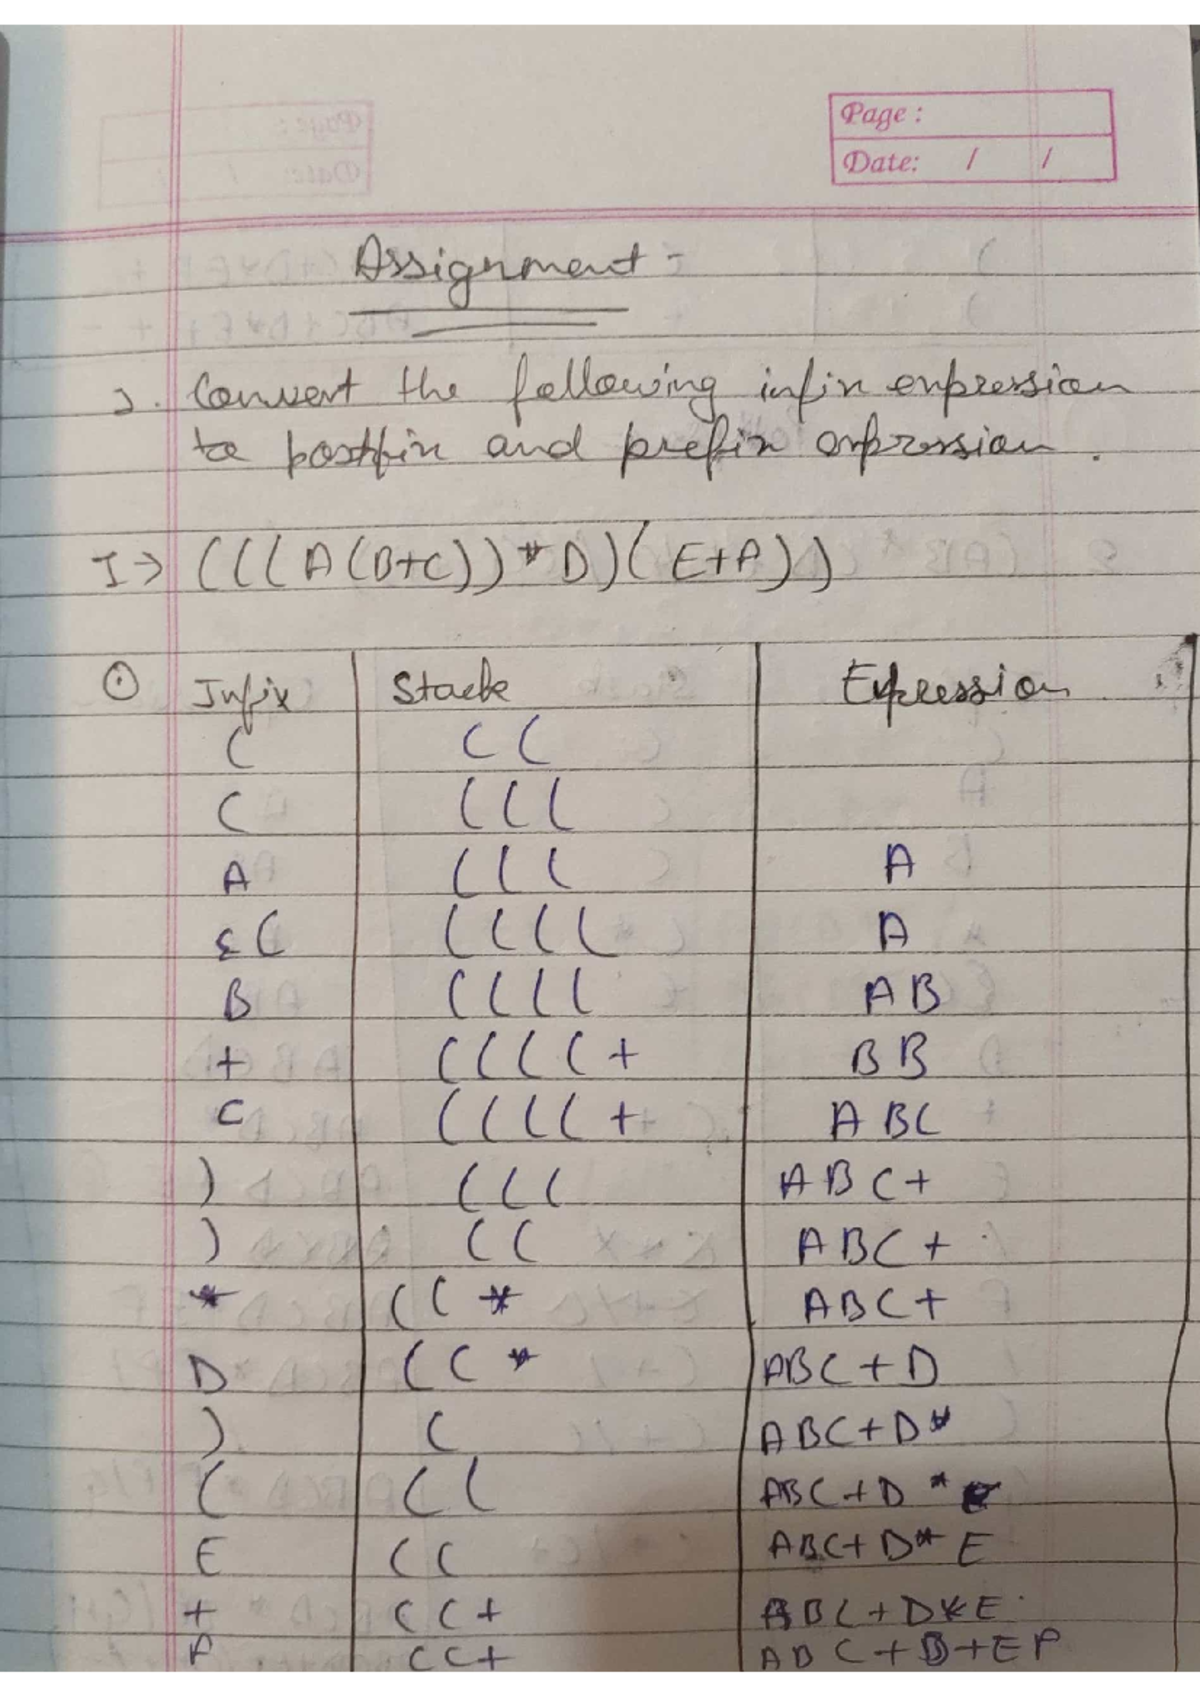 Page :
Date: / /
Assignment -
Convert the following infix expression
to postfix and prefix expression.
I → (((A(B+C))*D)(E+A))
Infix Stack Expression
( ( (
( ( ( (
A ( ( ( A
( ( ( ( ( A
B ( ( ( ( AB
+ ( ( ( ( + BB
C ( ( ( ( + ABC
) ( ( ( ABC+
) ( ( ABC+
* ( ( * ABC+
D ( ( * ABC+D
) ( ABC+D*
( ( ( ABC+D*
E ( ( ABC+D* E
+ ( ( + ABC+D*E
( ( +